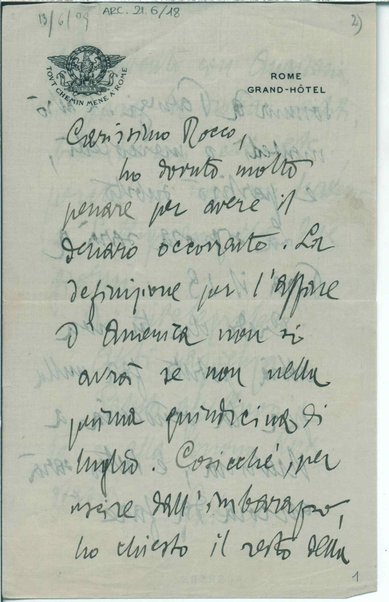 13/6/09
ARC. 21.6/18
2)
TOVT CHEMIN MENE A ROME
ROME
GRAND-HÔTEL
Carissimo Rocco,
ho dovuto molto
penare per avere il
denaro occorrente. La
definizione per l'affare
d'America non si
avrà se non nella
prima quindicina di
luglio. Cosicché, per
uscire dall'imbarazzo,
ho chiesto il resto della
1